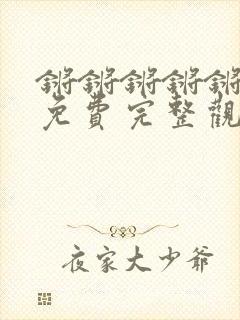 锵锵锵锵锵
免費完整觀
夜家大少爷